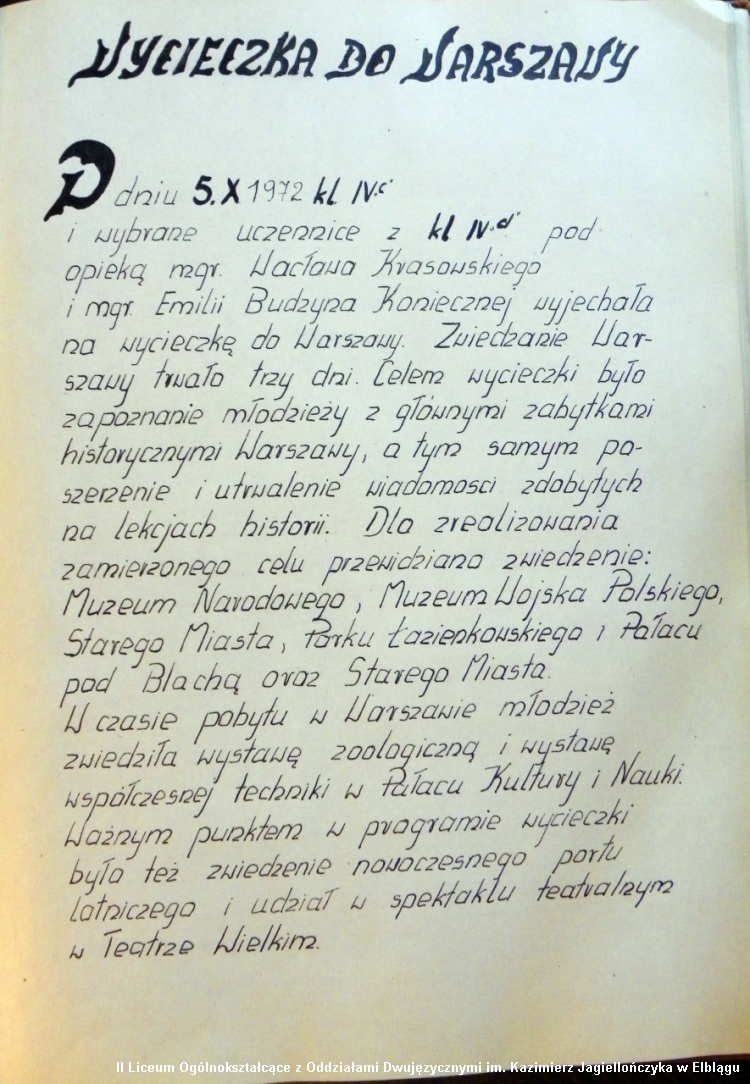 WYCIECZKA DO WARSZAWY
W dniu 5.X 1972 kl IV.c"
i wybrane uczennice z kl IV.d" pod
opieką mgr. Wacława Krasowskiego
i mgr. Emilii Budzyna Koniecznej wyjechała
na wycieczkę do Warszawy. Zwiedzanie War-
szawy trwało trzy dni. Celem wycieczki było
zapoznanie młodzieży z głównymi zabytkami
historycznymi Warszawy, a tym samym po-
szerzenie i utrwalenie wiadomości zdobytych
na lekcjach historii. Dla zrealizowania
zamierzonego celu przewidziano zwiedzenie:
Muzeum Narodowego, Muzeum Wojska Polskiego,
Starego Miasta, Parku Łazienkowskiego i Pałacu
pod Blachą oraz Starego Miasta.
W czasie pobytu w Warszawie młodzież
zwiedziła wystawę zoologiczną i wystawę
współczesnej techniki w Pałacu Kultury i Nauki.
Ważnym punktem w programie wycieczki
było też zwiedzenie nowoczesnego portu
lotniczego i udział w spektaklu teatralnym
w Teatrze Wielkim.
II Liceum Ogólnokształcące z Oddziałami Dwujęzycznymi im. Kazimierz Jagiellończyka w Elblągu